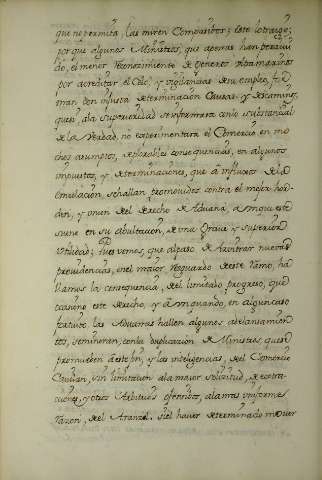 que no permita, las miren compasibos; esto lo traigo;
porque algunos Ministros, que apenas han percivi-
do, el menor reconocimiento de Generos ultramarinos
por acreditar el Celo, y vigilancias de su empleo, fo
man con injusta determinacion Causas, y descaminos,
que si ala Superioridad se informara con lo substancial
de la Verdad, no experimentara el Comercio en mu
chos asumptos, deplorables consequencias, en algunos
impuestos, y determinaciones, que a influxos de la
emulacion se hallan promovidos contra el mejor hor-
den, y onor del derecho de Aduana,
siene en su adultacion, de una Grave y Superior
Utilidad; Pues vemos, que al paso de arvitrar nuevas
providencias, en el maior resguardo de este Ramo, ha
llamos la consequencia, del limitado progreso, que
ocasiona este derecho, y aunquando, en algun caso
fortuito las Aduanas hallen algunos adelantamien
tos, seminoran, con la duplicacion de Ministros, que se
promueben a este fin, y las inteligencias, del Comercio
sin limitacion ala maior solicitud, de extra
ciones, y otros Arbitrios ofensivos, alamas uniforme
razon, del Aranzel. si el haver determinado mover